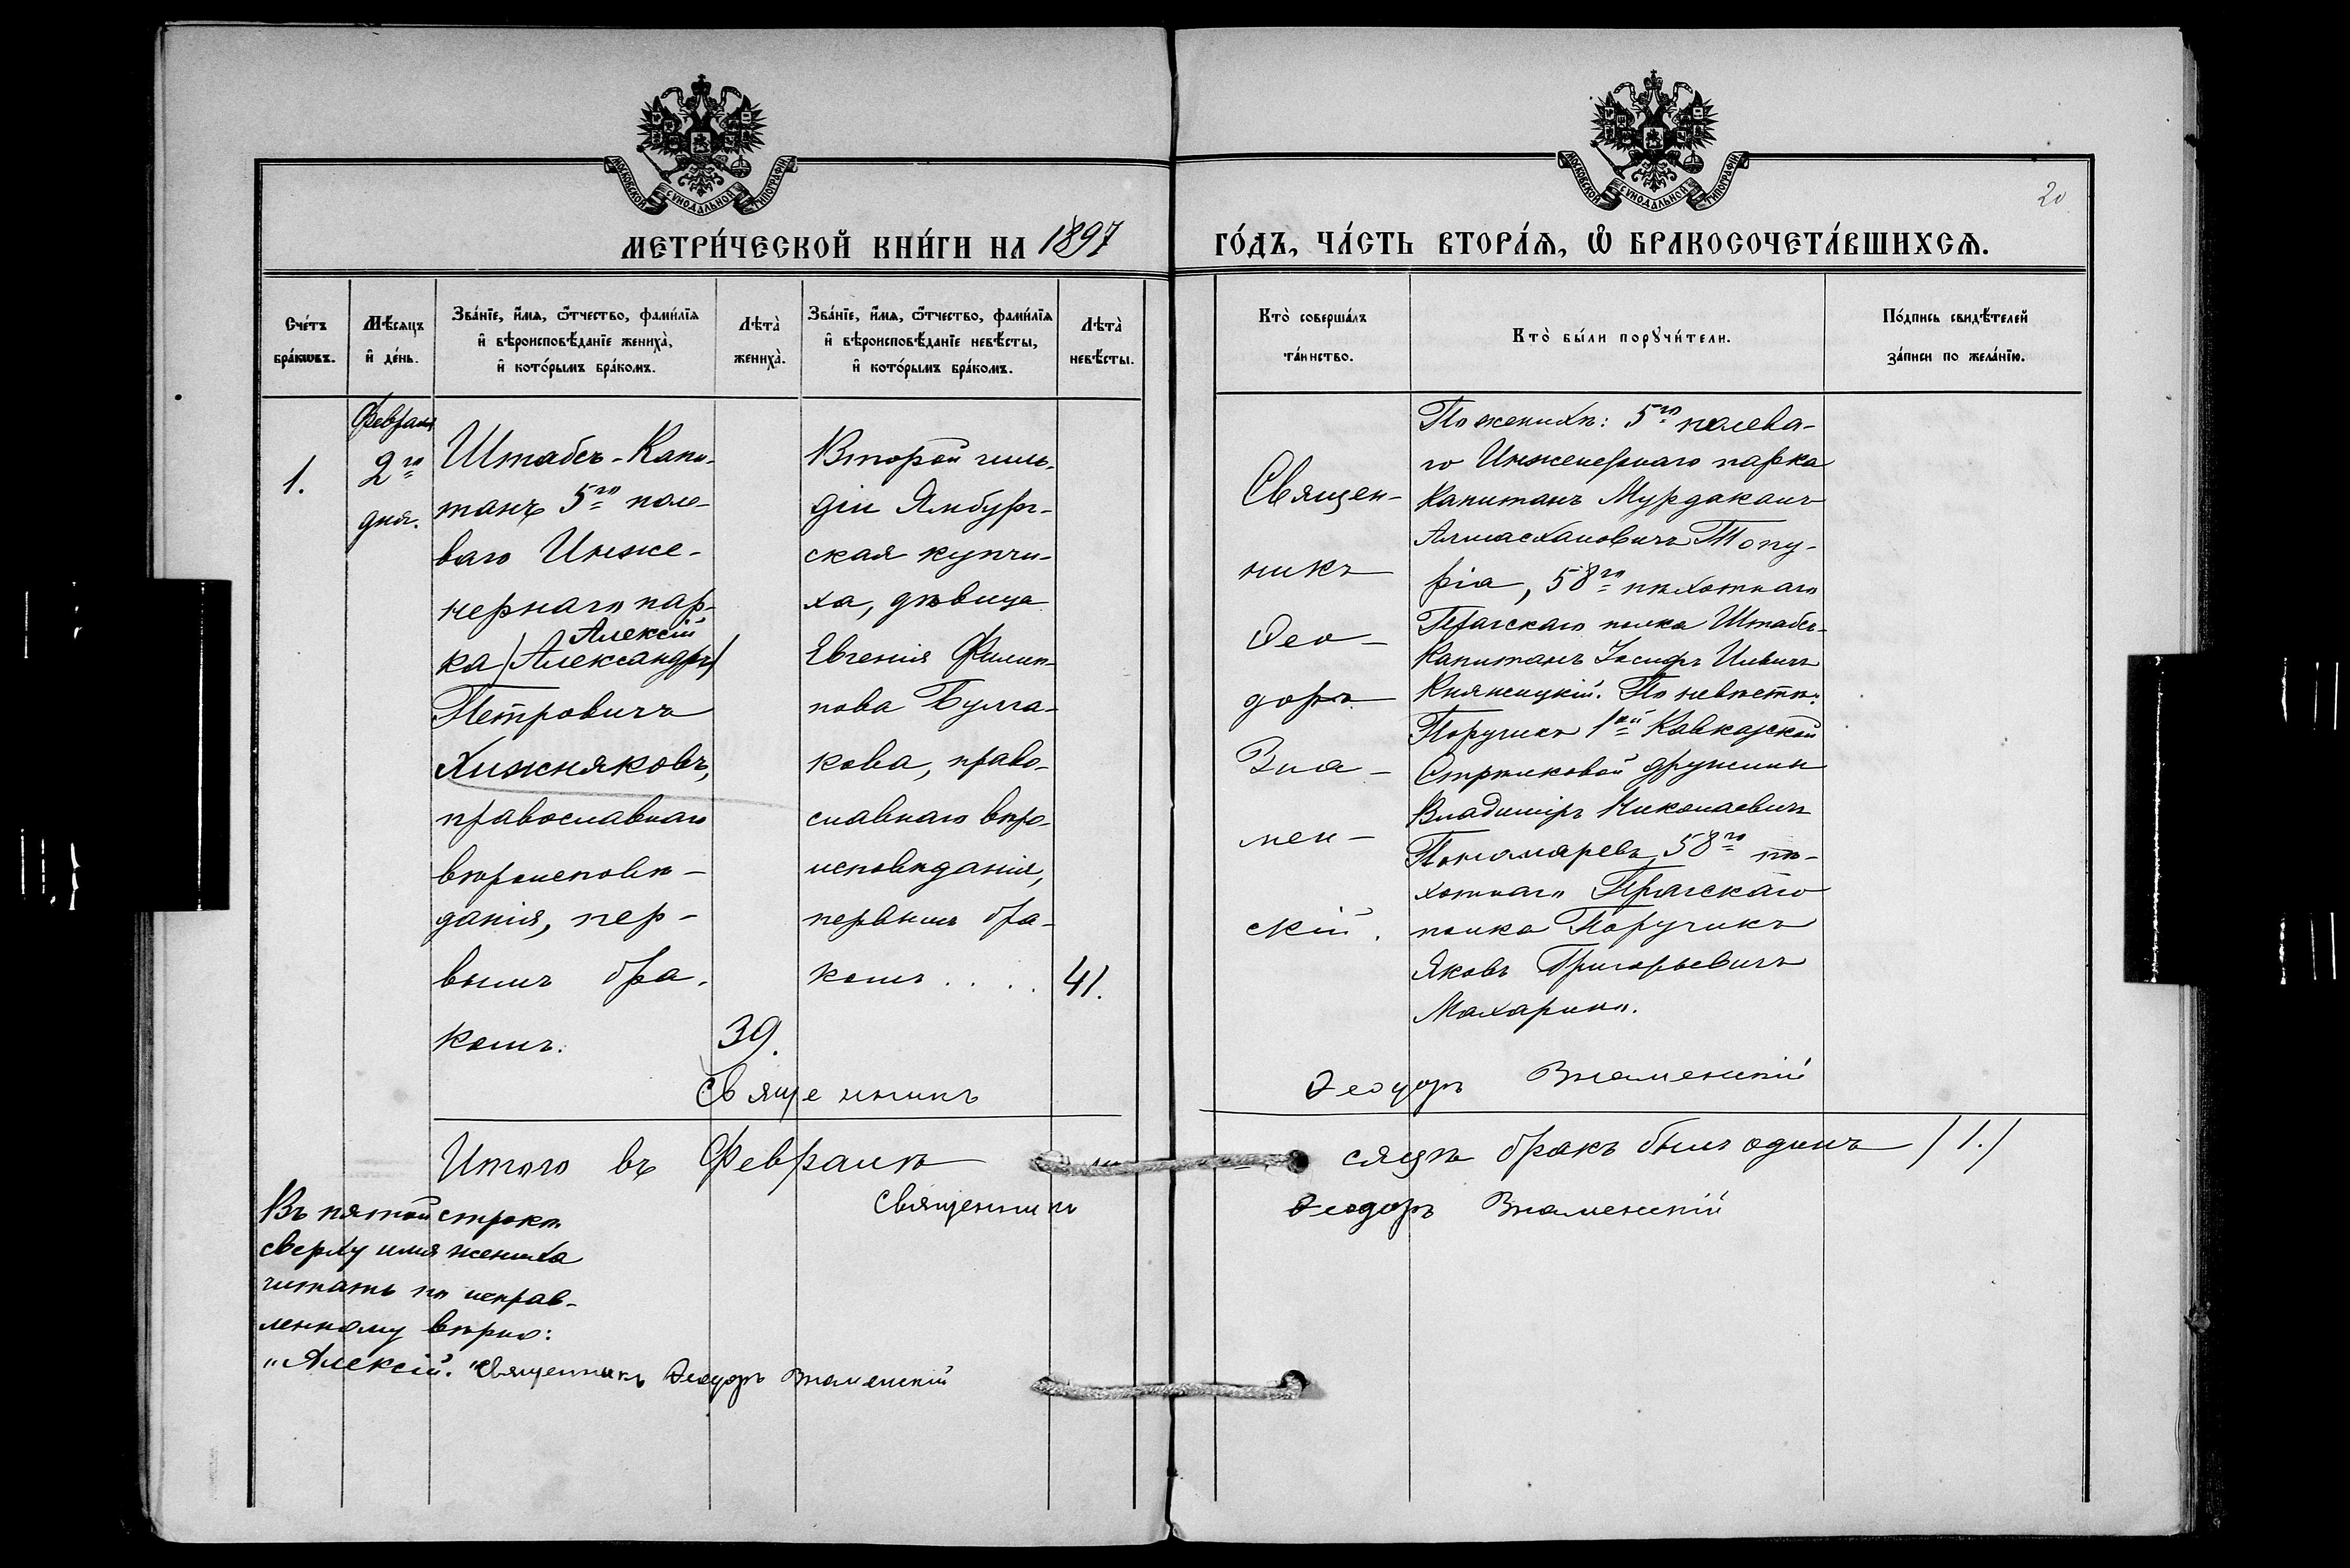 МОСКОВСКОЙ СѴНОДАЛЬНОЙ ТИПОГРАФІИ
МОСКОВСКОЙ СѴНОДАЛЬНОЙ ТИПОГРАФІИ
20
МЕТРИ́ЧЕСКОЙ КНИ́ГИ НА 1897
ГО́ДЪ, ЧА́СТЬ ВТОРА́Ѧ, Ѡ҆ БРАКОСОЧЕТА́ВШИХСѦ.
Сче́тъ
бра́кѡвъ.
Мѣ́сяцъ
и҆ де́нь.
Зва́нїе, и҆́мѧ, ѻ҆́тчество, фами́лїѧ
и҆ вѣроисповѣ́данїе жениха̀,
и҆ кото́рымъ бра́комъ.
Лѣта̀
жениха̀.
Зва́нїе, и҆́мѧ, ѻ҆́тчество, фами́лїѧ
и҆ вѣроисповѣ́данїе невѣ́сты,
и҆ кото́рымъ бра́комъ.
Лѣта̀
невѣ́сты.
Кто̀ соверша́лъ
та́инство.
Кто̀ бы́ли порꙋчи́тели.
По́дпись свидѣ́телей
за́писи по жела́нїю.
1.
Февраля
2го
дня.
Штабсъ-Капи-
танъ 5го поле-
ваго Инже-
нернаго пар-
Алексій
ка (Александръ)
Петровичъ
Хижняковъ,
православнаго
вѣроисповѣ-
данія, пер-
вымъ бра-
комъ.
39.
Второй гиль-
діи Ямбург-
ская купчи-
ха, дѣвица
Евгенія Филип-
пова Булга-
кова, право-
славнаго вѣро-
исповѣданія,
первымъ бра-
комъ ....
41.
Священ-
никъ
Ѳео-
доръ
Зна-
мен-
скій.
По женихѣ: 5го полева-
го Инженернаго парка
Капитанъ Мурдаканъ
Алмасхановичъ Топу-
ріа, 58го пѣхотнаго
Прагскаго полка Штабсъ-
Капитанъ Іосифъ Ильичъ
Княжицкій. По невѣстѣ:
Поручикъ 1ой Кавказской
Стрѣлковой дружины
Владиміръ Николаевичъ
Пономаревъ, 58го пѣ-
хотнаго Прагскаго
полка Поручикъ
Яковъ Григорьевичъ
Махарина.
Священникъ Ѳеодоръ Знаменскій
Итого въ Февралѣ сяцѣ бракъ былъ одинъ /1./
Священникъ Ѳеодоръ Знаменскій
Въ пятой строкѣ
сверху имя жениха
читать по исправ-
ленному вѣрно:
„Алексій." Священникъ Ѳеодоръ Знаменскій